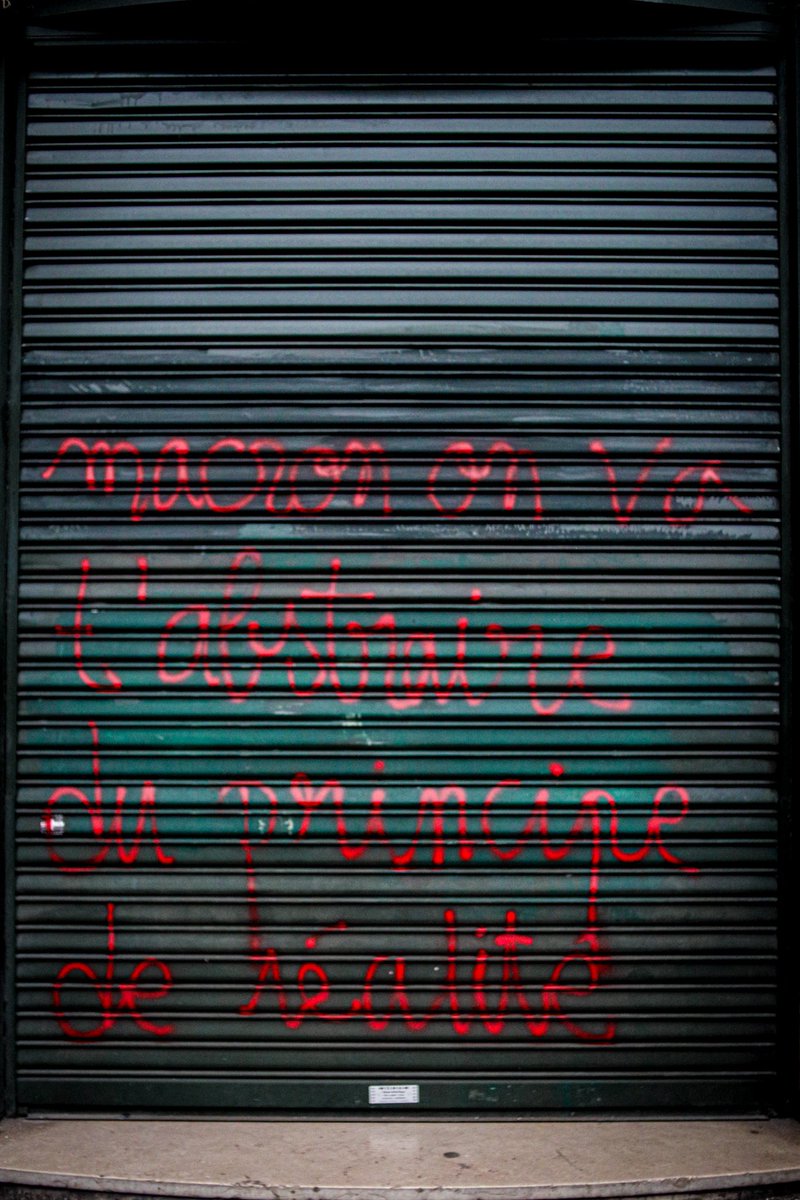 macron on va
t'abstraire
du principe
de réalité